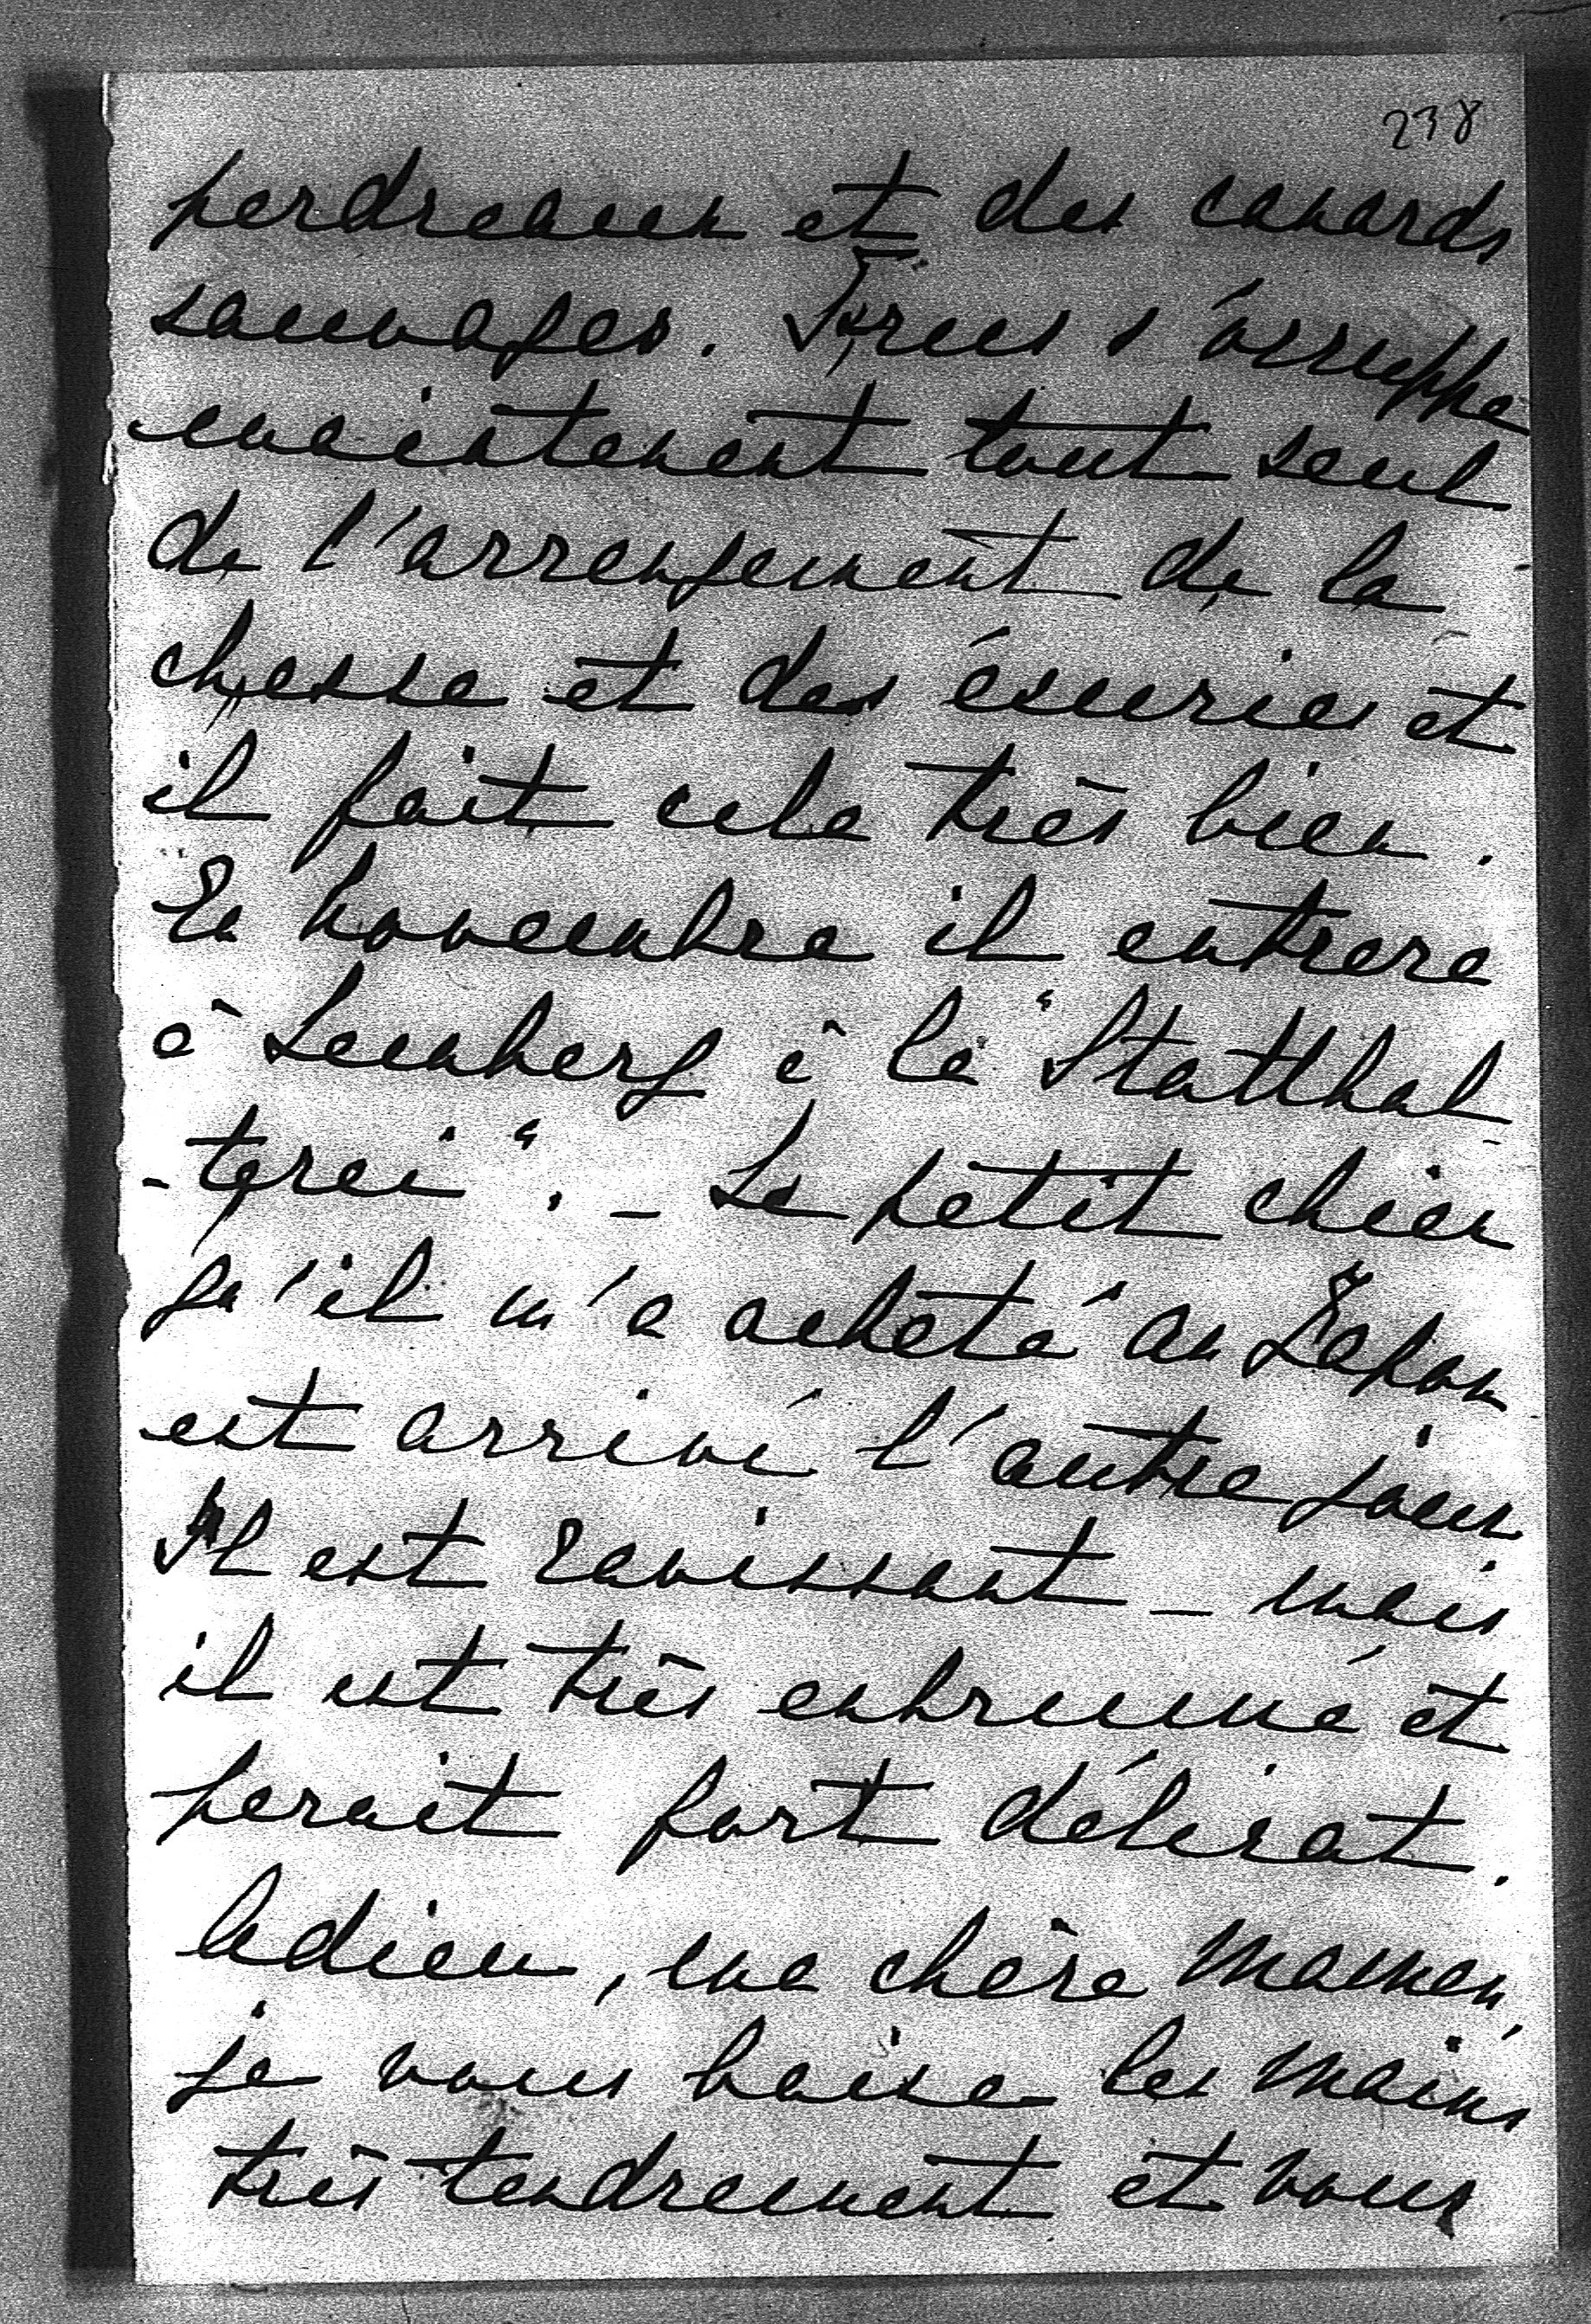 238
perdreaux et des canards
sauvages. s'occuppe
maintenant tout seul
de l'arrangement de la
chasse et des écuries et
il fait cela très bien.
En novembre il entrera
à Lemberg à la "Statthal-
-terei". – Le petit chien
qu'il m'a acheté au Japon
est arrivé l'autre jour
Il est ravissant – mais
il est très enhrumé et
parait fort délicat.
Adieu, ma chère Maman,
je vous baise les mains
très tendrement et vous